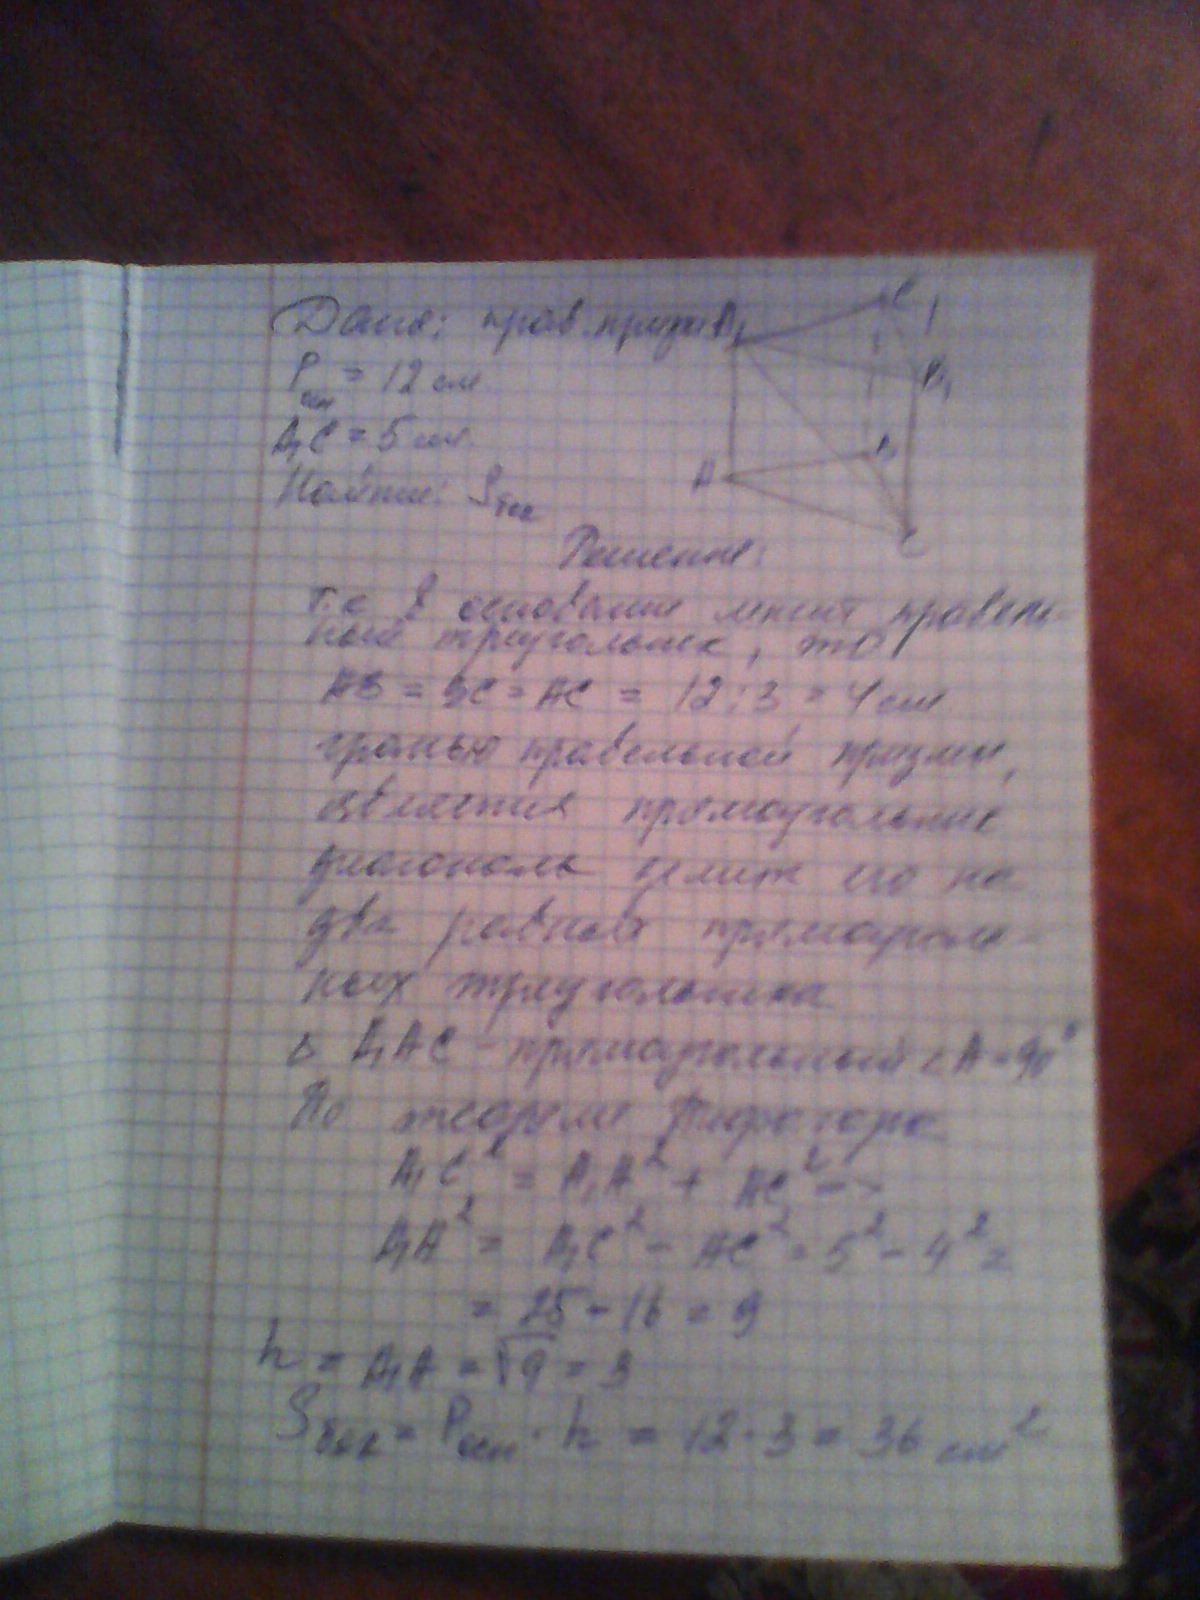 Дано: прав. призма
Pосн = 12 см
A₁C = 5 см
Найти: Sбок
A₁
C₁
B₁
A
B
C
Решение:
т.к в основание лежит правель-
ный треугольник, то
AB = BC = AC = 12 : 3 = 4 см
гранью правельной призмы,
является прямоугольник
диагональ делит его на
два равных прямоуголь-
ных треугольника
Δ A₁AC - прямоугольный ∠A = 90°
По теореме Пифагора
A₁C² = A₁A² + AC² =>
A₁A² = A₁C² - AC² = 5² - 4² =
= 25 - 16 = 9
h = A₁A = √9 = 3
Sбок = Pосн · h = 12 · 3 = 36 см²